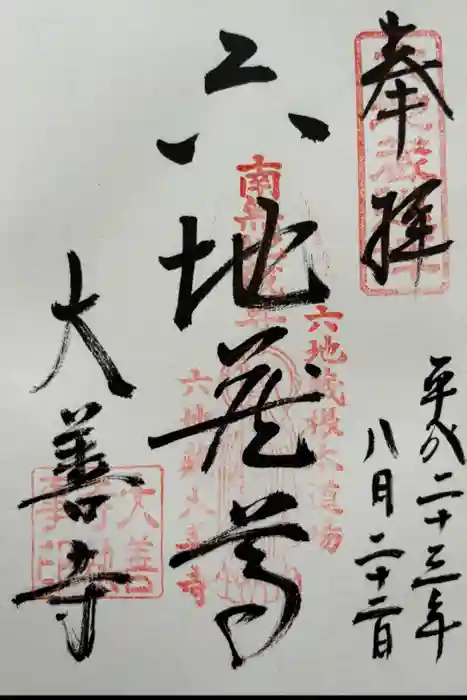 奉拝
平成二十三年
八月二十二日
六地蔵尊
南無地蔵尊
六地蔵根本道場
六地蔵大善寺
大善寺